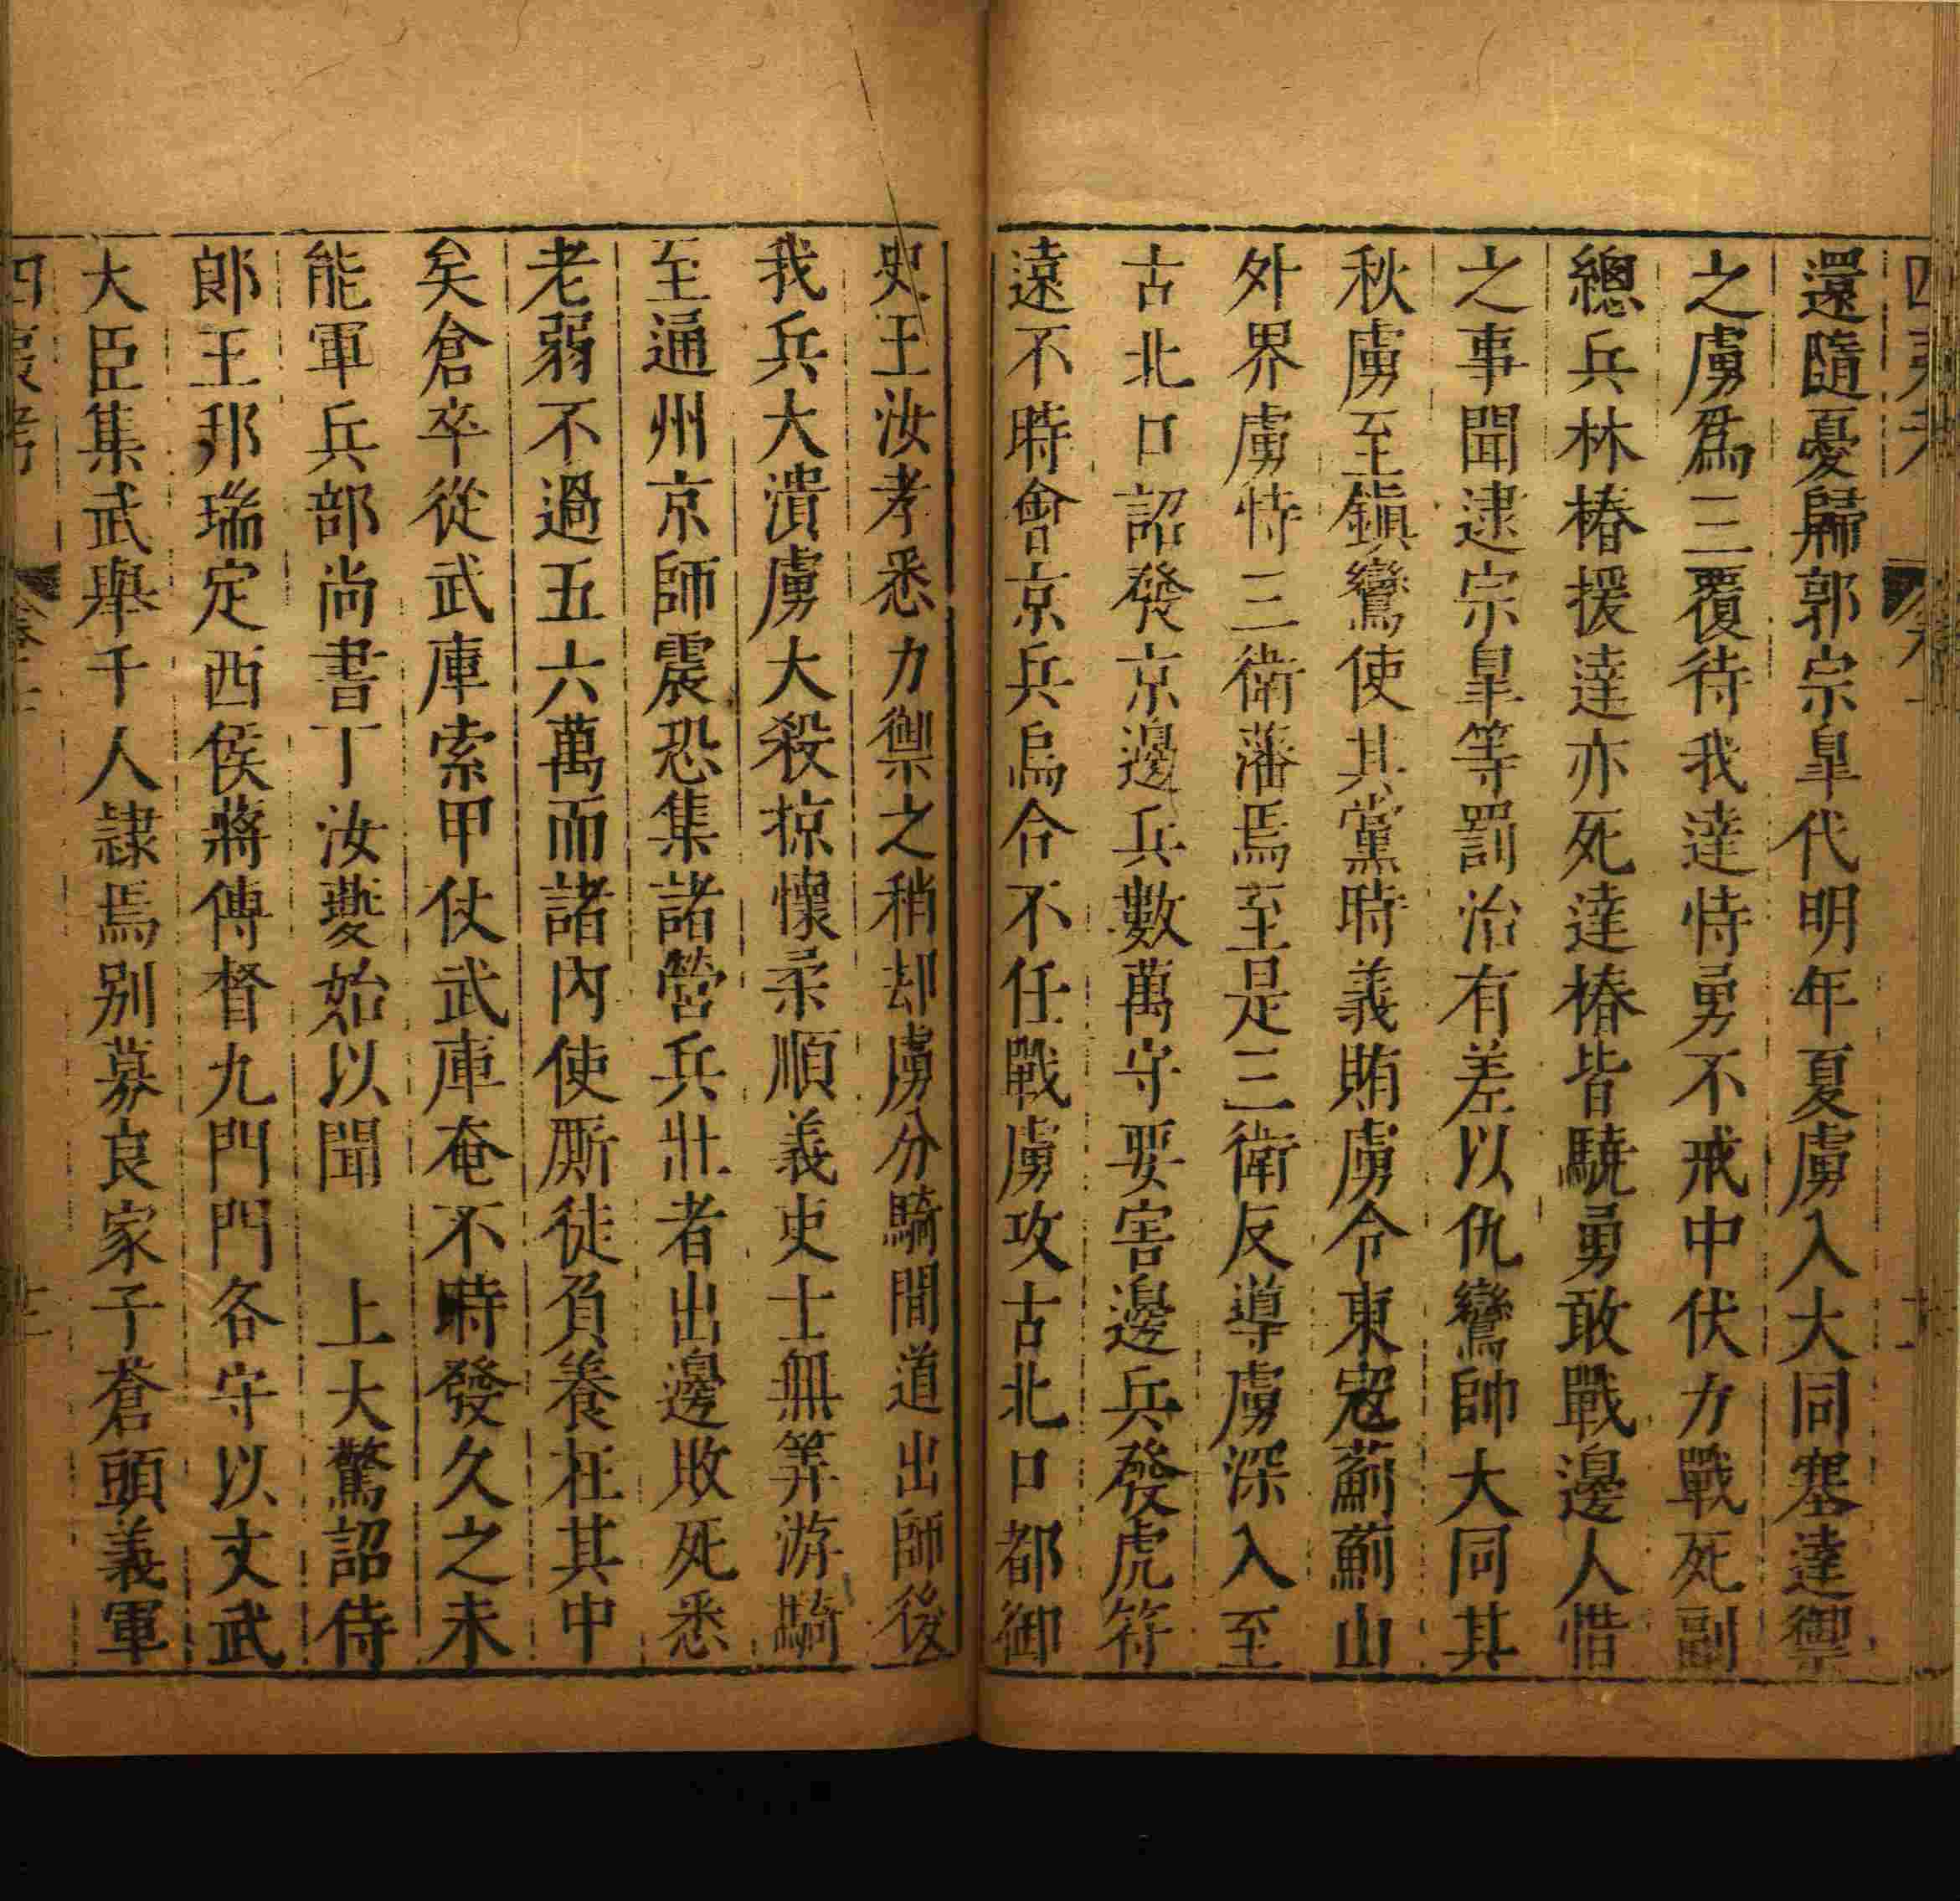 還隨憂歸郭宗皐代明年夏虜入大同塞達禦
之虜爲三覆待我達恃勇不戒中伏力戰死副
總兵林椿援達亦死達椿皆驍勇敢戰邊人惜
之事聞逮宗皐等罰治有差以仇鸞帥大同其
秋虜至鎭鸞使其黨時義賄虜令東寇薊薊山
外界虜恃三衛藩焉至是三衛反導虜深入至
古北口詔發京邊兵數萬守要害邊兵發虎符
遠不時會京兵烏合不任戰虜攻古北口都御
史王汝孝悉力禦之稍却虜分騎間道出師後
我兵大潰虜大殺掠懷柔順義吏士無筭游騎
至通州京師震恐集諸營兵壯者出邊敗死悉
老弱不過五六萬而諸內使厮徒負養在其中
矣倉卒從武庫索甲仗武庫奄不時發久之未
能軍兵部尚書丁汝夔始以聞　上大驚詔侍
郎王邦瑞定西侯蔣傅督九門門各守以文武
大臣集武舉千人隷焉别募良家子蒼頭義軍